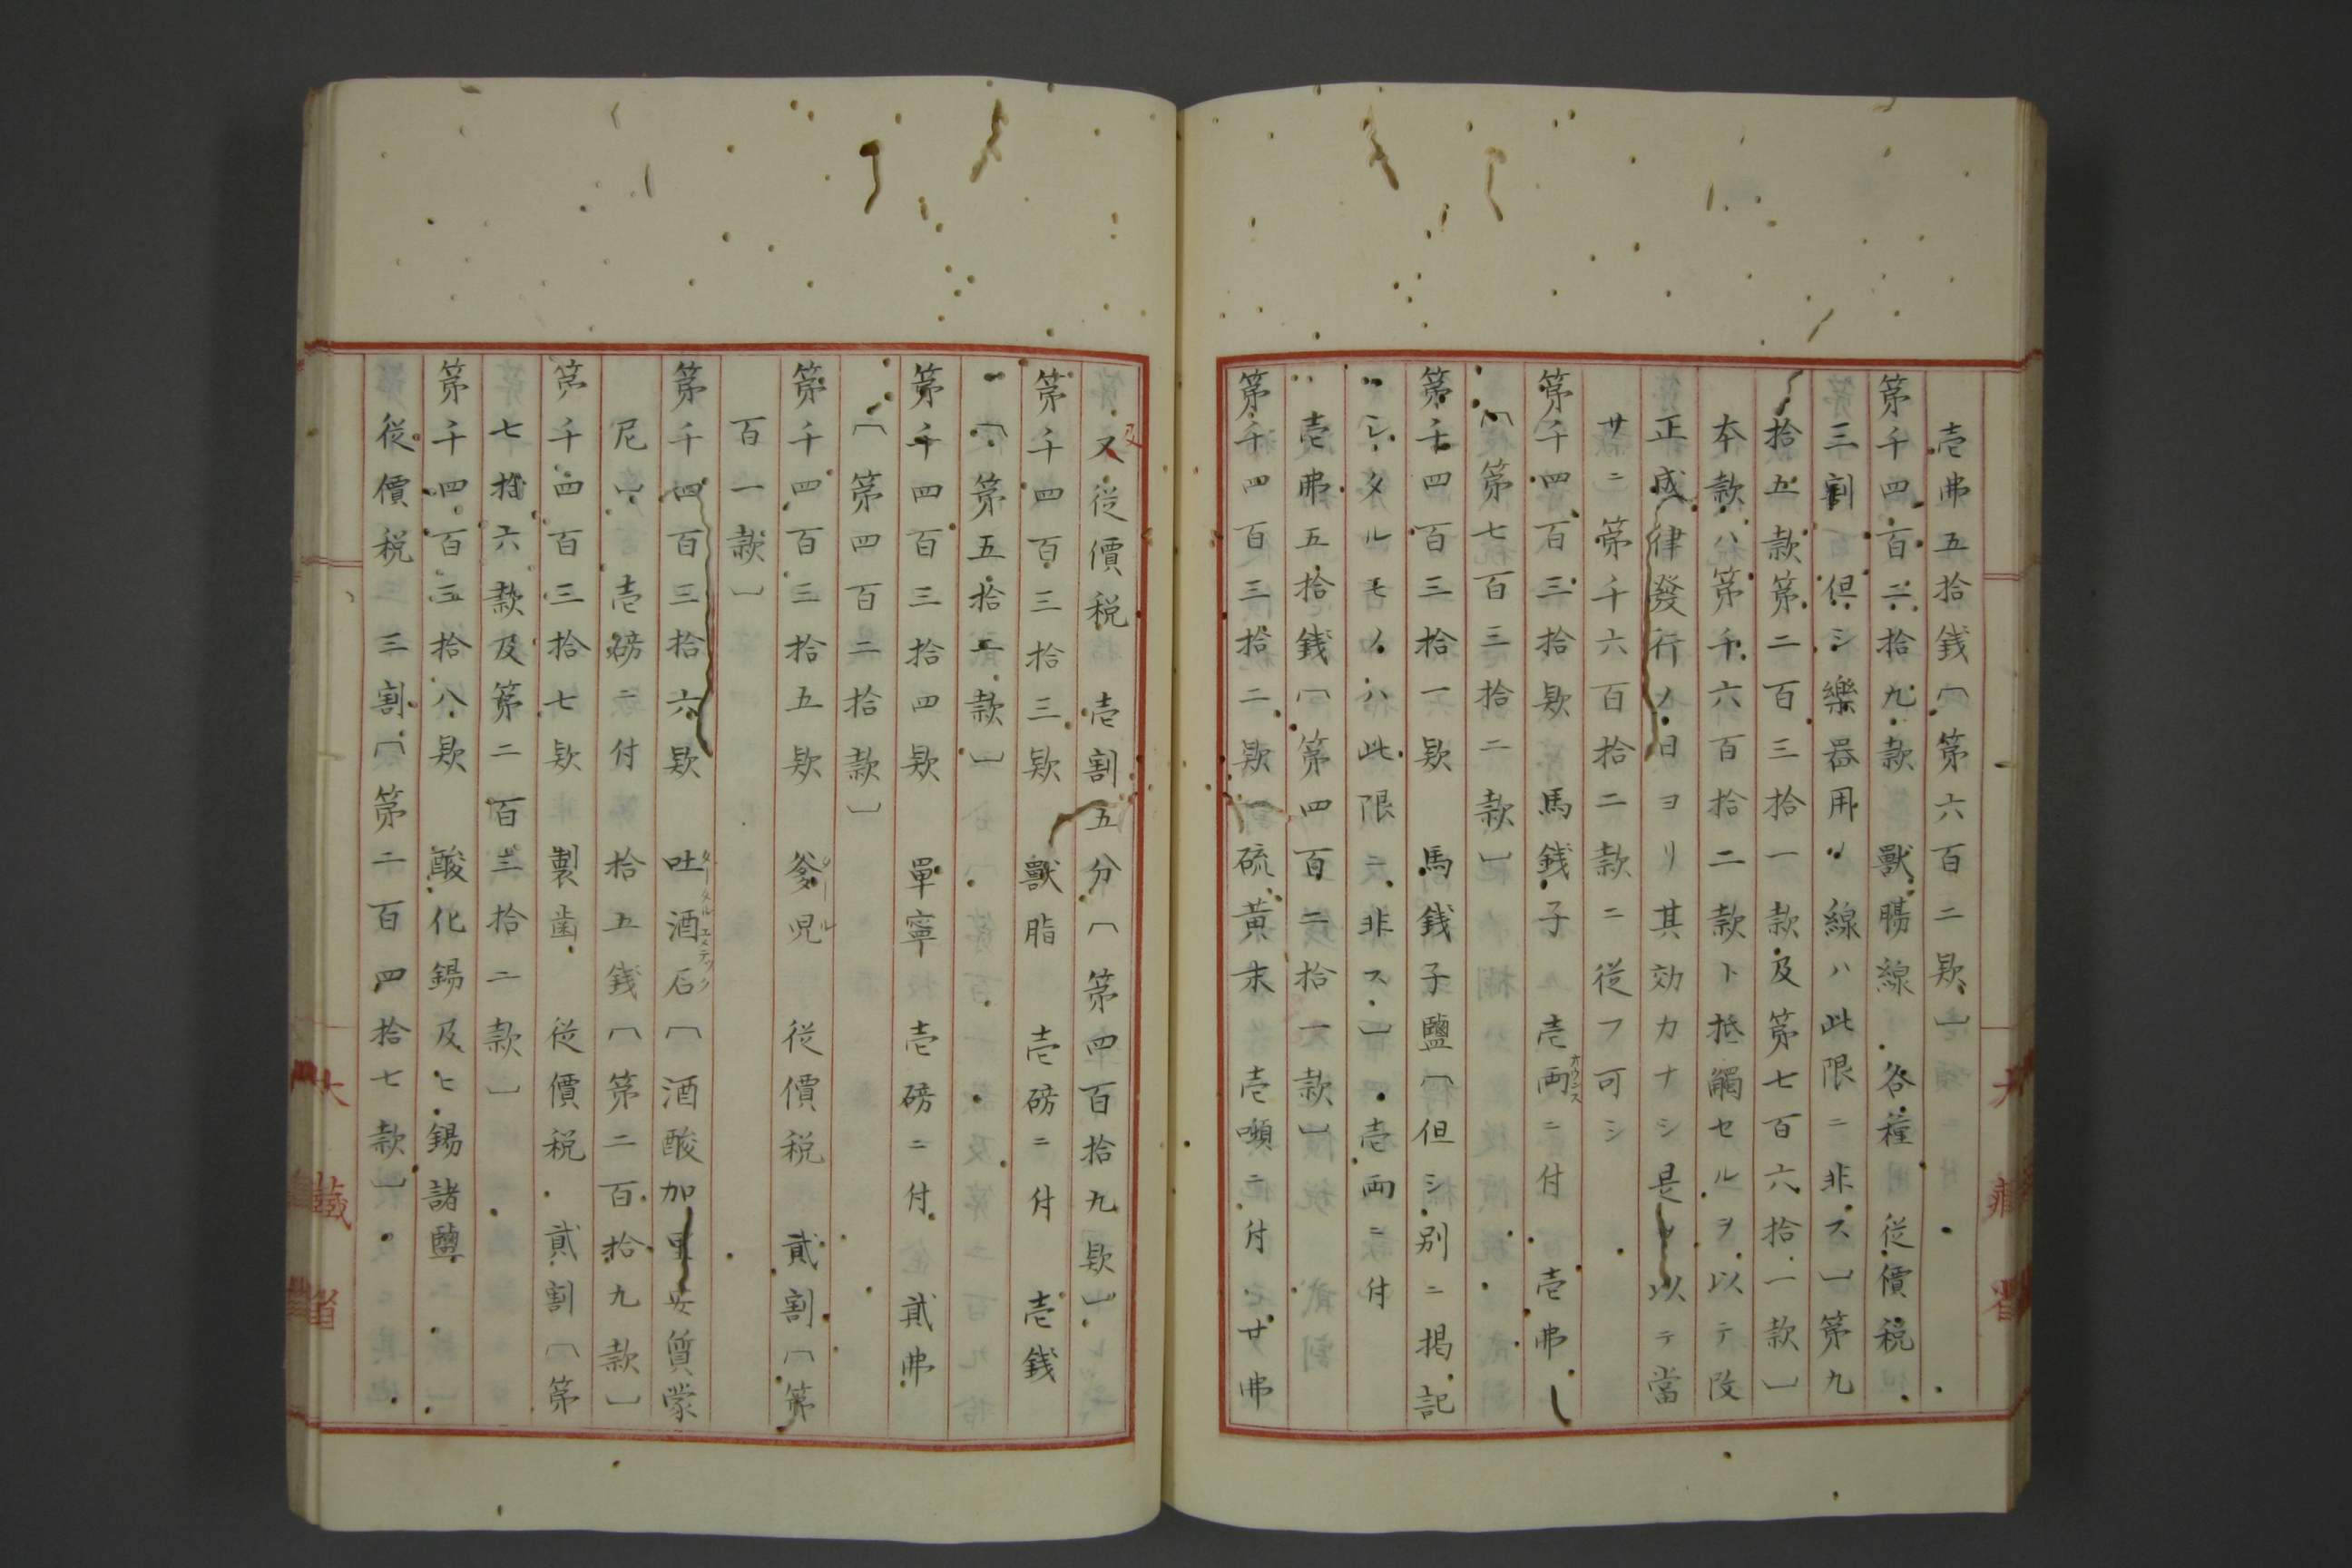 壱弗五拾銭〔第六百二款〕
第千四百二拾九款　獣腸線　各種　従價税
三割〔但シ樂器用ノ線ハ此限ニ非ス〕〔第九
拾五款第二百三拾一款及第七百六拾一款〕
本款ハ第千六百拾二款ト抵觸セルヲ以テ改
正成律發行ノ日ヨリ其効力ナシ是ヲ以テ當
サニ第千六百拾二款ニ従フ可シ
第千四百三拾款　馬銭子　壱両ニ付　壱弗
オウンス
〔第七百三拾二款〕
第千四百三拾一款　馬銭子鹽〔但シ別ニ掲記
シタルモノハ此限ニ非ス〕　壱両ニ付
壱弗五拾銭〔第四百二拾一款〕
第千四百三拾二款　硫黄末　壱噸ニ付　廿弗
大藏省
又従價税　壱割五分〔第四百拾九款〕
及
第千四百三拾三款　獣脂　壱磅ニ付　壱銭
〔第五拾一款〕
第千四百三拾四款　單寧　壱磅ニ付　貳弗
〔第四百二拾款〕
第千四百三拾五款　爹児　従價税　貳割〔第
タール
百一款〕
第千四百三拾六款　吐酒石〔酒酸加里安質蒙
タータルエメテック
尼〕　壱磅ニ付　拾五銭〔第二百拾九款〕
第千四百三拾七款　製歯　従價税　貳割〔第
七拾六款及第二百三拾二款〕
第千四百三拾八款　酸化錫及ヒ錫諸鹽
従價税　三割〔第二百四拾七款〕
大藏省